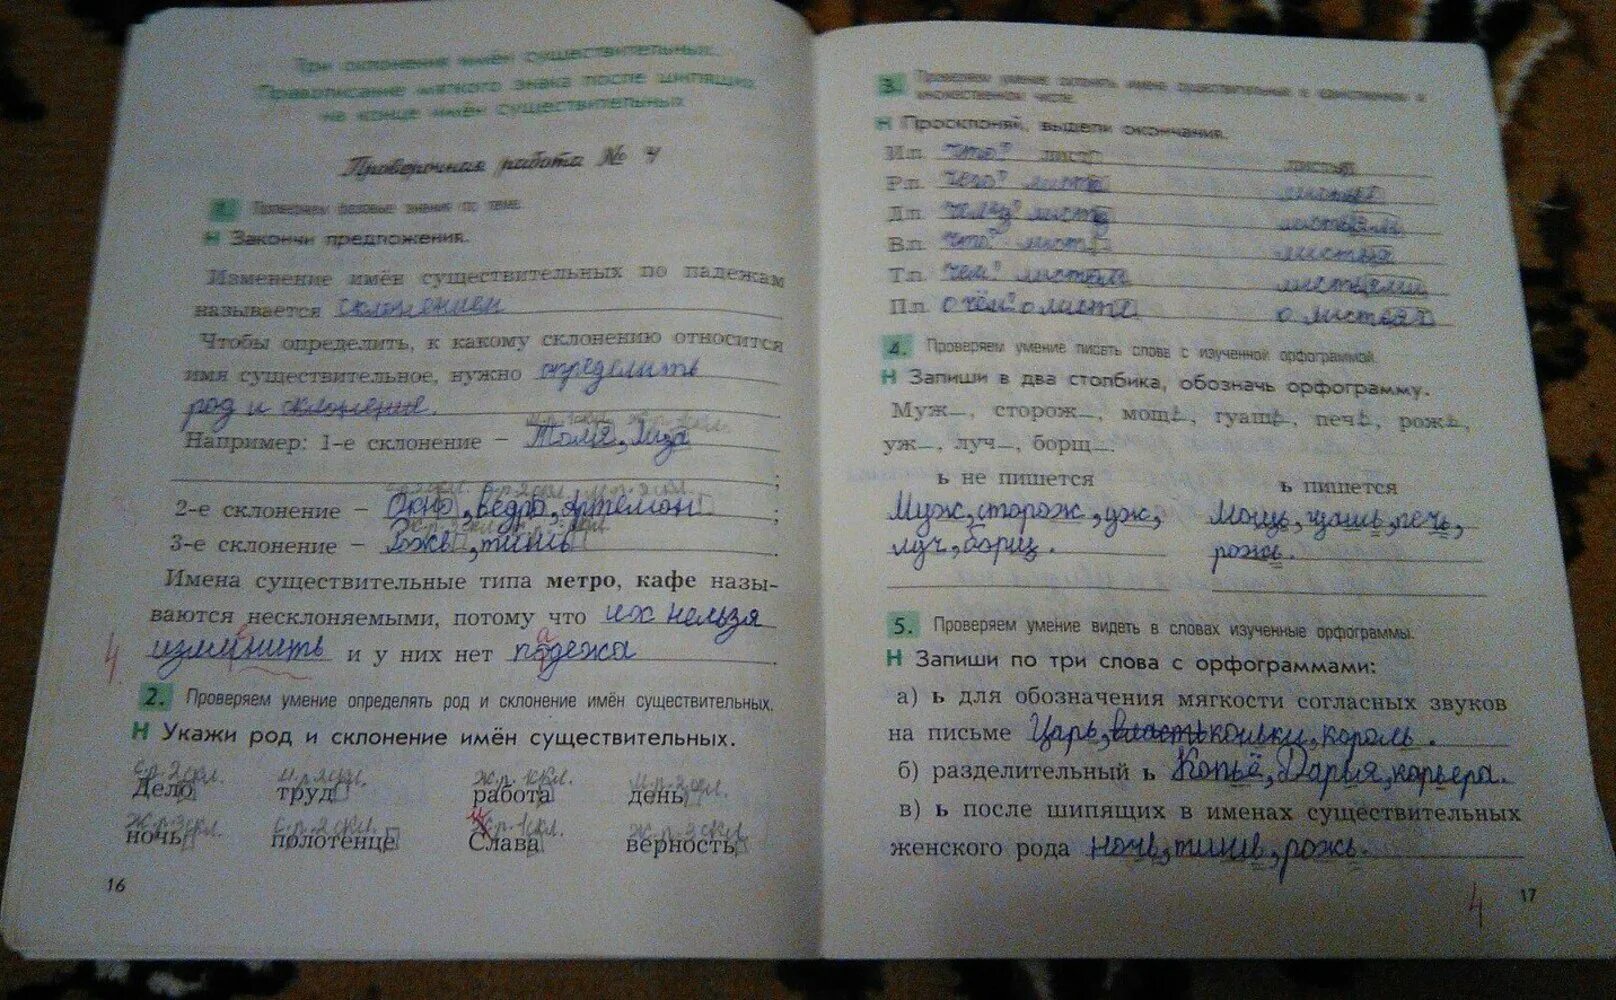 Три склонения имён существительных.
Правописание мягкого знака после шипящих
на конце имён существительных
Проверочная работа № 4
1. Проверяем базовые знания по теме.
Н Закончи предложения.
Изменение имён существительных по падежам
называется склонением
Чтобы определить, к какому склонению относится
имя существительное, нужно определить
род и склонение.
Например: 1-е склонение – Толя, Лиза
;
2-е склонение – Окно, ведро, Артемон ;
3-е склонение – Рожь, тишь .
Имена существительные типа метро, кафе назы-
ваются несклоняемыми, потому что их нельзя
изминить и у них нет падежа .
4
2. Проверяем умение определять род и склонение имён существительных.
Н Укажи род и склонение имён существительных.
с.р. 2 скл. ж.р. 1 скл. м.р. 2 скл.
Дело труд работа день
ж.р. 3 скл. с.р. 2 скл. 1 скл. ж.р. 3 скл.
ночь полотенце Слава верность
16
3. Проверяем умение склонять имена существительные в единственном и
множественном числе.
Н Просклоняй, выдели окончания.
И.п. что? лист листья
Р.п. чего? листа листьев
Д.п. чему? листу листьям
В.п. что? лист листья
Т.п. чем? листом листьями
П.п. о чём? о листе о листьях
4. Проверяем умение писать слова с изученной орфограммой.
Н Запиши в два столбика, обозначь орфограмму.
Муж_, сторож_, мощь, гуашь, печь, рожь,
уж_, луч_, борщ_.
ь не пишется ь пишется
Муж, сторож, уж, Мощь, гуашь, печь,
луч, борщ. рожь.
5. Проверяем умение видеть в словах изученные орфограммы.
Н Запиши по три слова с орфограммами:
а) ь для обозначения мягкости согласных звуков
на письме Царь, власть коньки, король.
б) разделительный ь Копьё, Дарья, карьера.
в) ь после шипящих в именах существительных
женского рода ночь, тишь, рожь.
4
17